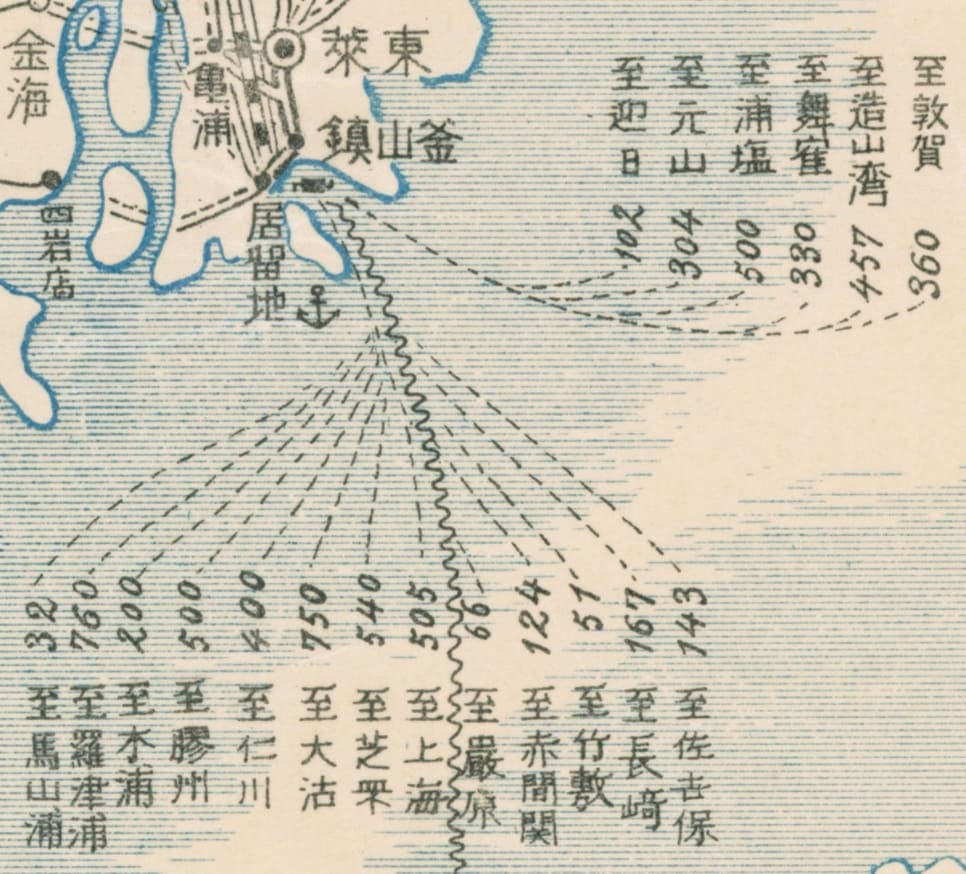 東萊
釜山鎮
金海
亀浦
四岩店
居留地
至敦賀 360
至造山湾 457
至舞寉 330
至浦塩 500
至元山 304
至迎日 102
143 至佐吉保
167 至長﨑
51 至竹敷
124 至赤間関
66 至嚴原
505 至上海
540 至芝罘
750 至大沽
400 至仁川
500 至膠州
200 至木浦
760 至羅津浦
32 至馬山浦